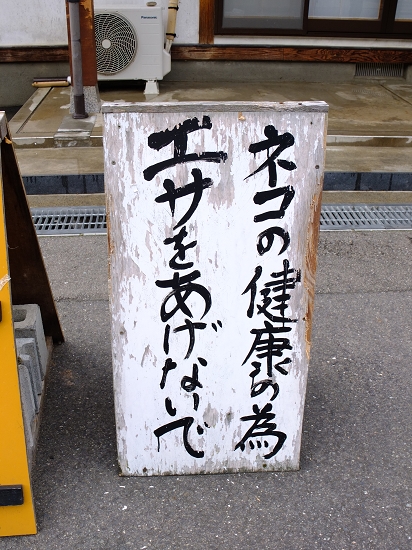 ネコの健康の為
エサをあげないで
Panasonic